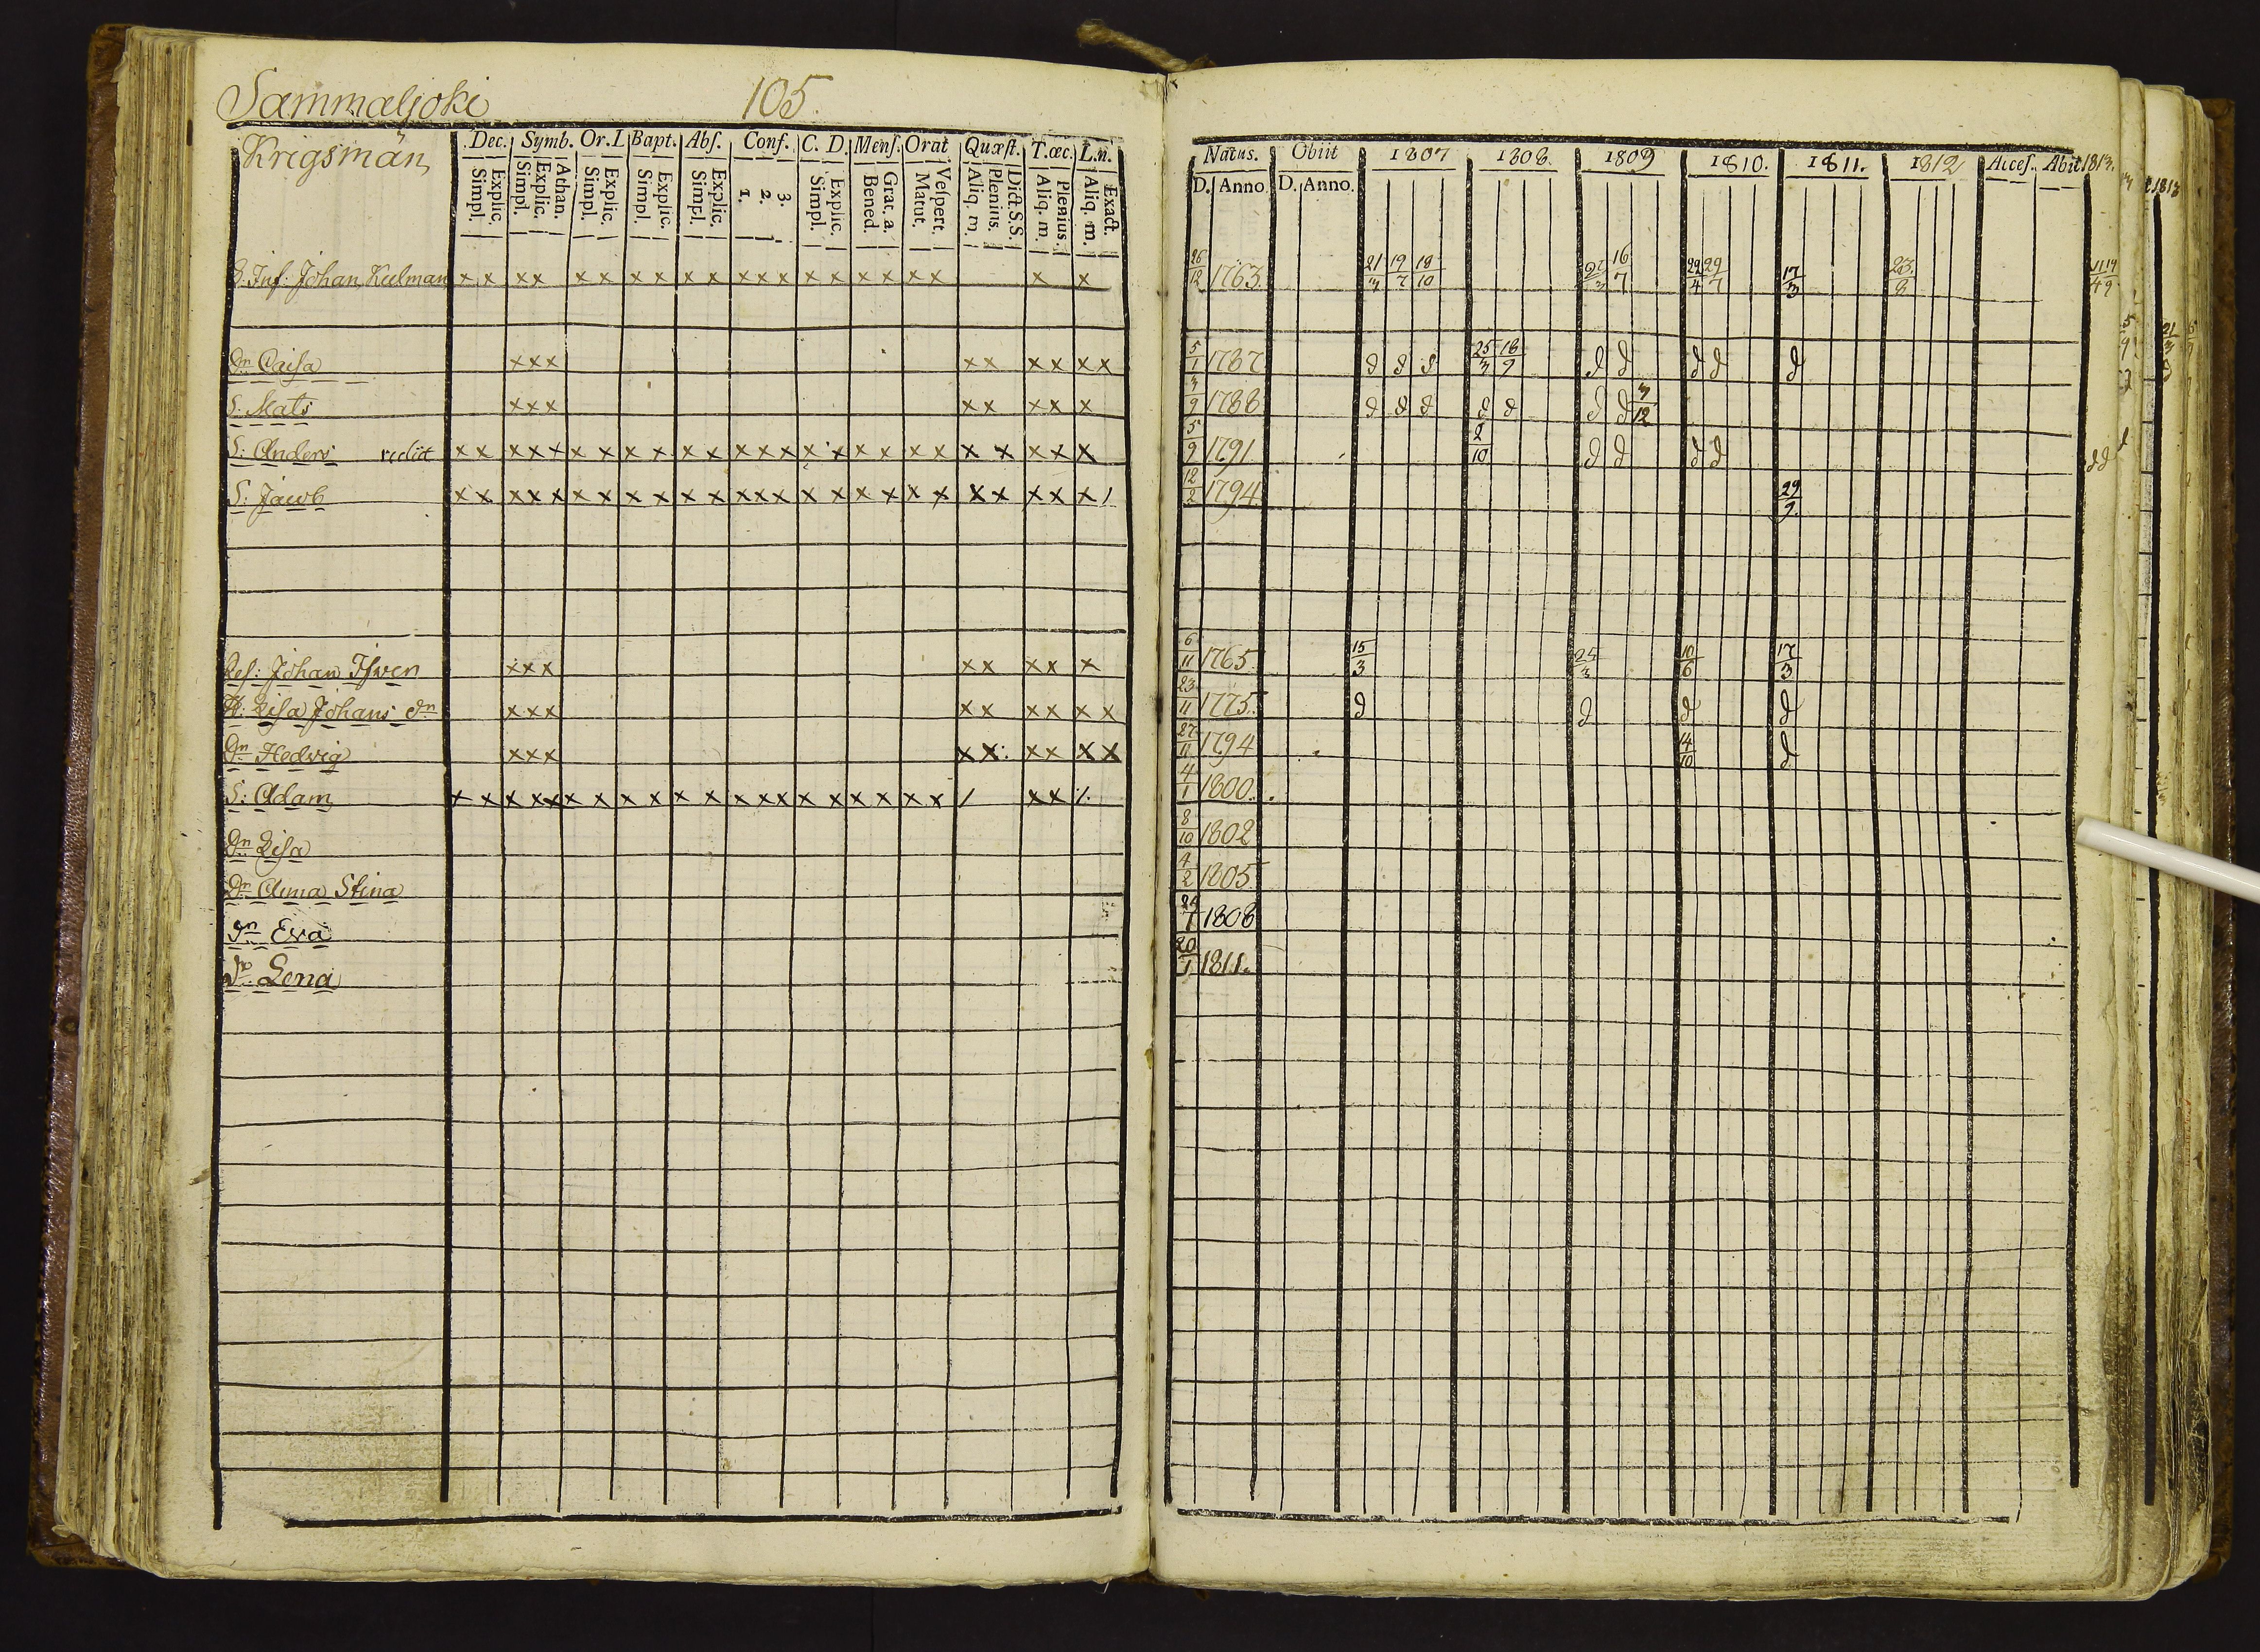 Sammaljoki 105.
Krigsmän
Dec. Symb. Or. L Bapt. Abſ. Conf. C. D. Menſ. Orat. Quæſt. T. œc. L. n.
Simpl. Explic. Simpl. Explic. Athan. Simpl. Explic. Simpl. Explic. Simpl. Explic. 1. 2. 3. Simpl. Explic. Bened. Grat. a. Matut. Veſpert. Aliq. m. Plenius. Dict. S. S. Aliq. m. Plenius. Aliq. m. Exact.
Natus. Obiit 1807 1808. 1809 1810. 1811. 1812 Acceſ. Abiit 1813.
D. Anno. D. Anno.
Inf: Johan Kulman x x x x x x x x x x x x x x x x x x x x x 26/12 1763. 21/3 19/7 18/10 16/7 29/4 29/7 17/3 23/8
Dn Caisa x x x x x x x x x 5/1 1787 d d d 25/3 18/9 d d d d d
S: Mats x x x x x x x x 3/9 1788 d d d d d d d 3/12
S: Anders rediit x x x x x x x x x x x x x x x x x x x x x x x x x x 5/9 1791 2/10 d d d d d d
S: Jacob x x x x x x x x x x x x x x x x x x x x x x x x x / 12/2 1794 29/9
Johan Isven x x x x x x x x 6/11 1765 15/3 25/3 10/6 17/3
H: Lisa Johans dn x x x x x x x x x 23/11 1775. d d d d
Dn Hedvig x x x x x x x x x 27/11 1794 14/10 d
S: Adam x x x x x x x x x x x x x x x x x x x x / x x /. 4/1 1800.
Dn Lisa 8/10 1802
Dn Anna Stina 4/2 1805
Dn Eva 1808
Dr Lena 20/1 1811.